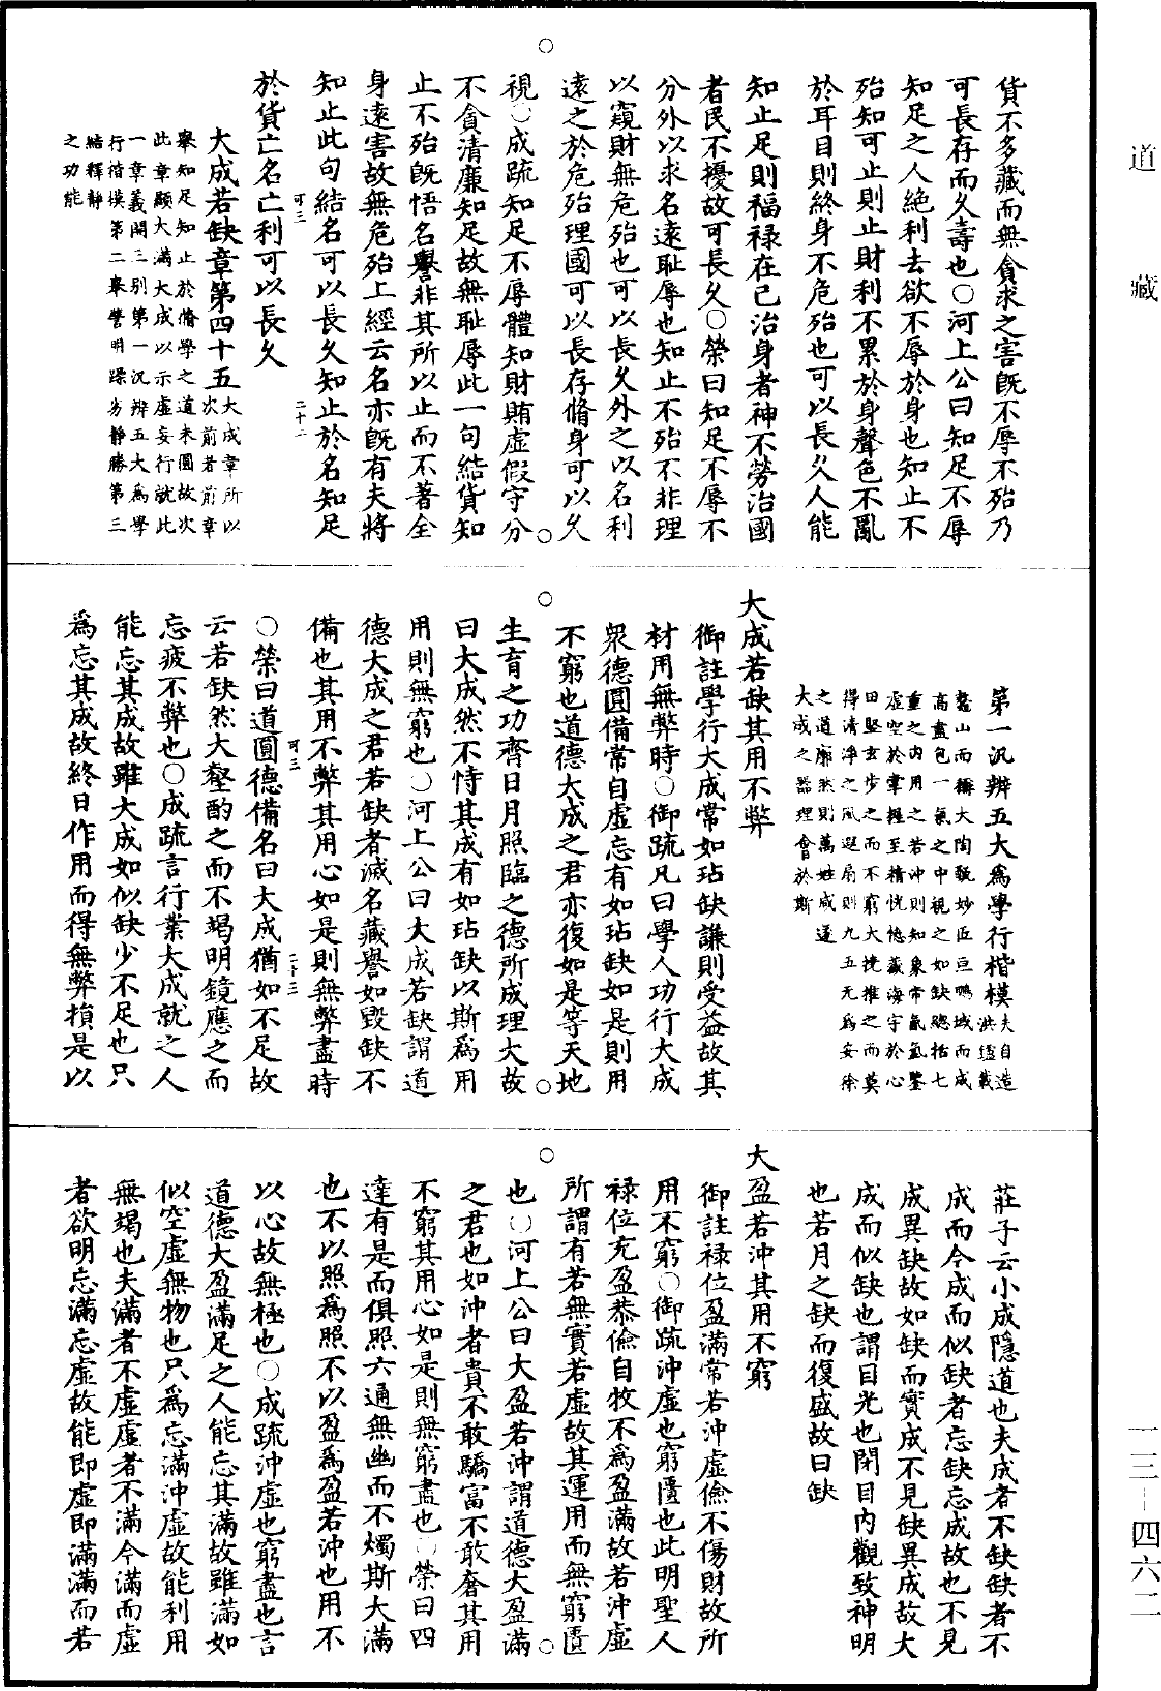 道藏
貨不多藏而無貪求之害旣不辱不殆乃
可長存而久壽也○河上公曰知足不辱
知足之人絶利去欲不辱於身也知止不
殆知可止則止財利不累於身聲色不亂
於耳目則終身不危殆也可以長久人能
知止足則福祿在己治身者神不勞治國
者民不擾故可長久○榮曰知足不辱不
分外以求名遠恥辱也知止不殆不非理
以窺財無危殆也可以長久外之以名利
遠之於危殆理國可以長存脩身可以久
視○成疏知足不辱體知財賄虛假守分
不貪清廉知足故無恥辱此一句結貨知
止不殆旣悟名譽非其所以止而不著全
身遠害故無危殆上經云名亦旣有夫將
知止此句結名可以長久知止於名知足
可三
二十二
於貨亡名亡利可以長久
大成若缺章第四十五
大成章所以
次前者前章
舉知足知止於脩學之道未圓故次
此章顯大滿大成以示虛妄行就此
一章義開三別第一汎辨五大爲學
行楷模第二舉譬明躁劣靜勝第三
結釋靜
之功能
第一汎辨五大爲學行楷模
夫自造
洪鑪戴
鼇山而稱大陶甄妙匠巨鴨城而成
高盡包一氣之中視之如缺總括七
重之內用之若沖則知象帝氤氳鑒
虛空於掌握至精恍惚藏海宇於心
田堅玄步之而不窮大挽推之而莫
得清淨之風遐扇則九五无爲安徐
之道廓然則萬姓咸遂
大成之器理會於斯
大成若缺其用不弊
御註學行大成常如玷缺謙則受益故其
材用無弊時○御疏凡曰學人功行大成
衆德圓備常自虛忘有如玷缺如是則用
不窮也道德大成之君亦復如是等天地
生育之功齊日月照臨之德所成理大故
曰大成然不恃其成有如玷缺以斯爲用
用則無窮也○河上公曰大成若缺謂道
德大成之君若缺者滅名藏譽如毀缺不
備也其用不弊其用心如是則無弊盡時
可三
二十三
○榮曰道圓德備名曰大成猶如不足故
云若缺然大壑酌之而不竭明鏡應之而
忘疲不弊也○成疏言行業大成就之人
能忘其成故雖大成如似缺少不足也只
爲忘其成故終日作用而得無弊損是以
莊子云小成隱道也夫成者不缺缺者不
成而今成而似缺者忘缺忘成故也不見
成異缺故如缺而實成不見缺異成故大
成而似缺也謂目光也閉目內觀致神明
也若月之缺而復盛故曰缺
大盈若沖其用不窮
御註祿位盈滿常若沖虛儉不傷財故所
用不窮○御疏沖虛也窮匱也此明聖人
祿位充盈恭儉自牧不爲盈滿故若沖虛
所謂有若無實若虛故其運用而無窮匱
也○河上公曰大盈若沖謂道德大盈滿
之君也如沖者貴不敢驕富不敢奢其用
不窮其用心如是則無窮盡也○榮曰四
達有是而俱照六通無幽而不燭斯大滿
也不以照爲照不以盈爲盈若沖也用不
以心故無極也○成疏沖虛也窮盡也言
道德大盈滿足之人能忘其滿故雖滿如
似空虛無物也只爲忘滿沖虛故能利用
無竭也夫滿者不虛虛者不滿今滿而虛
者欲明忘滿忘虛故能即虛即滿滿而若
一三—四六二